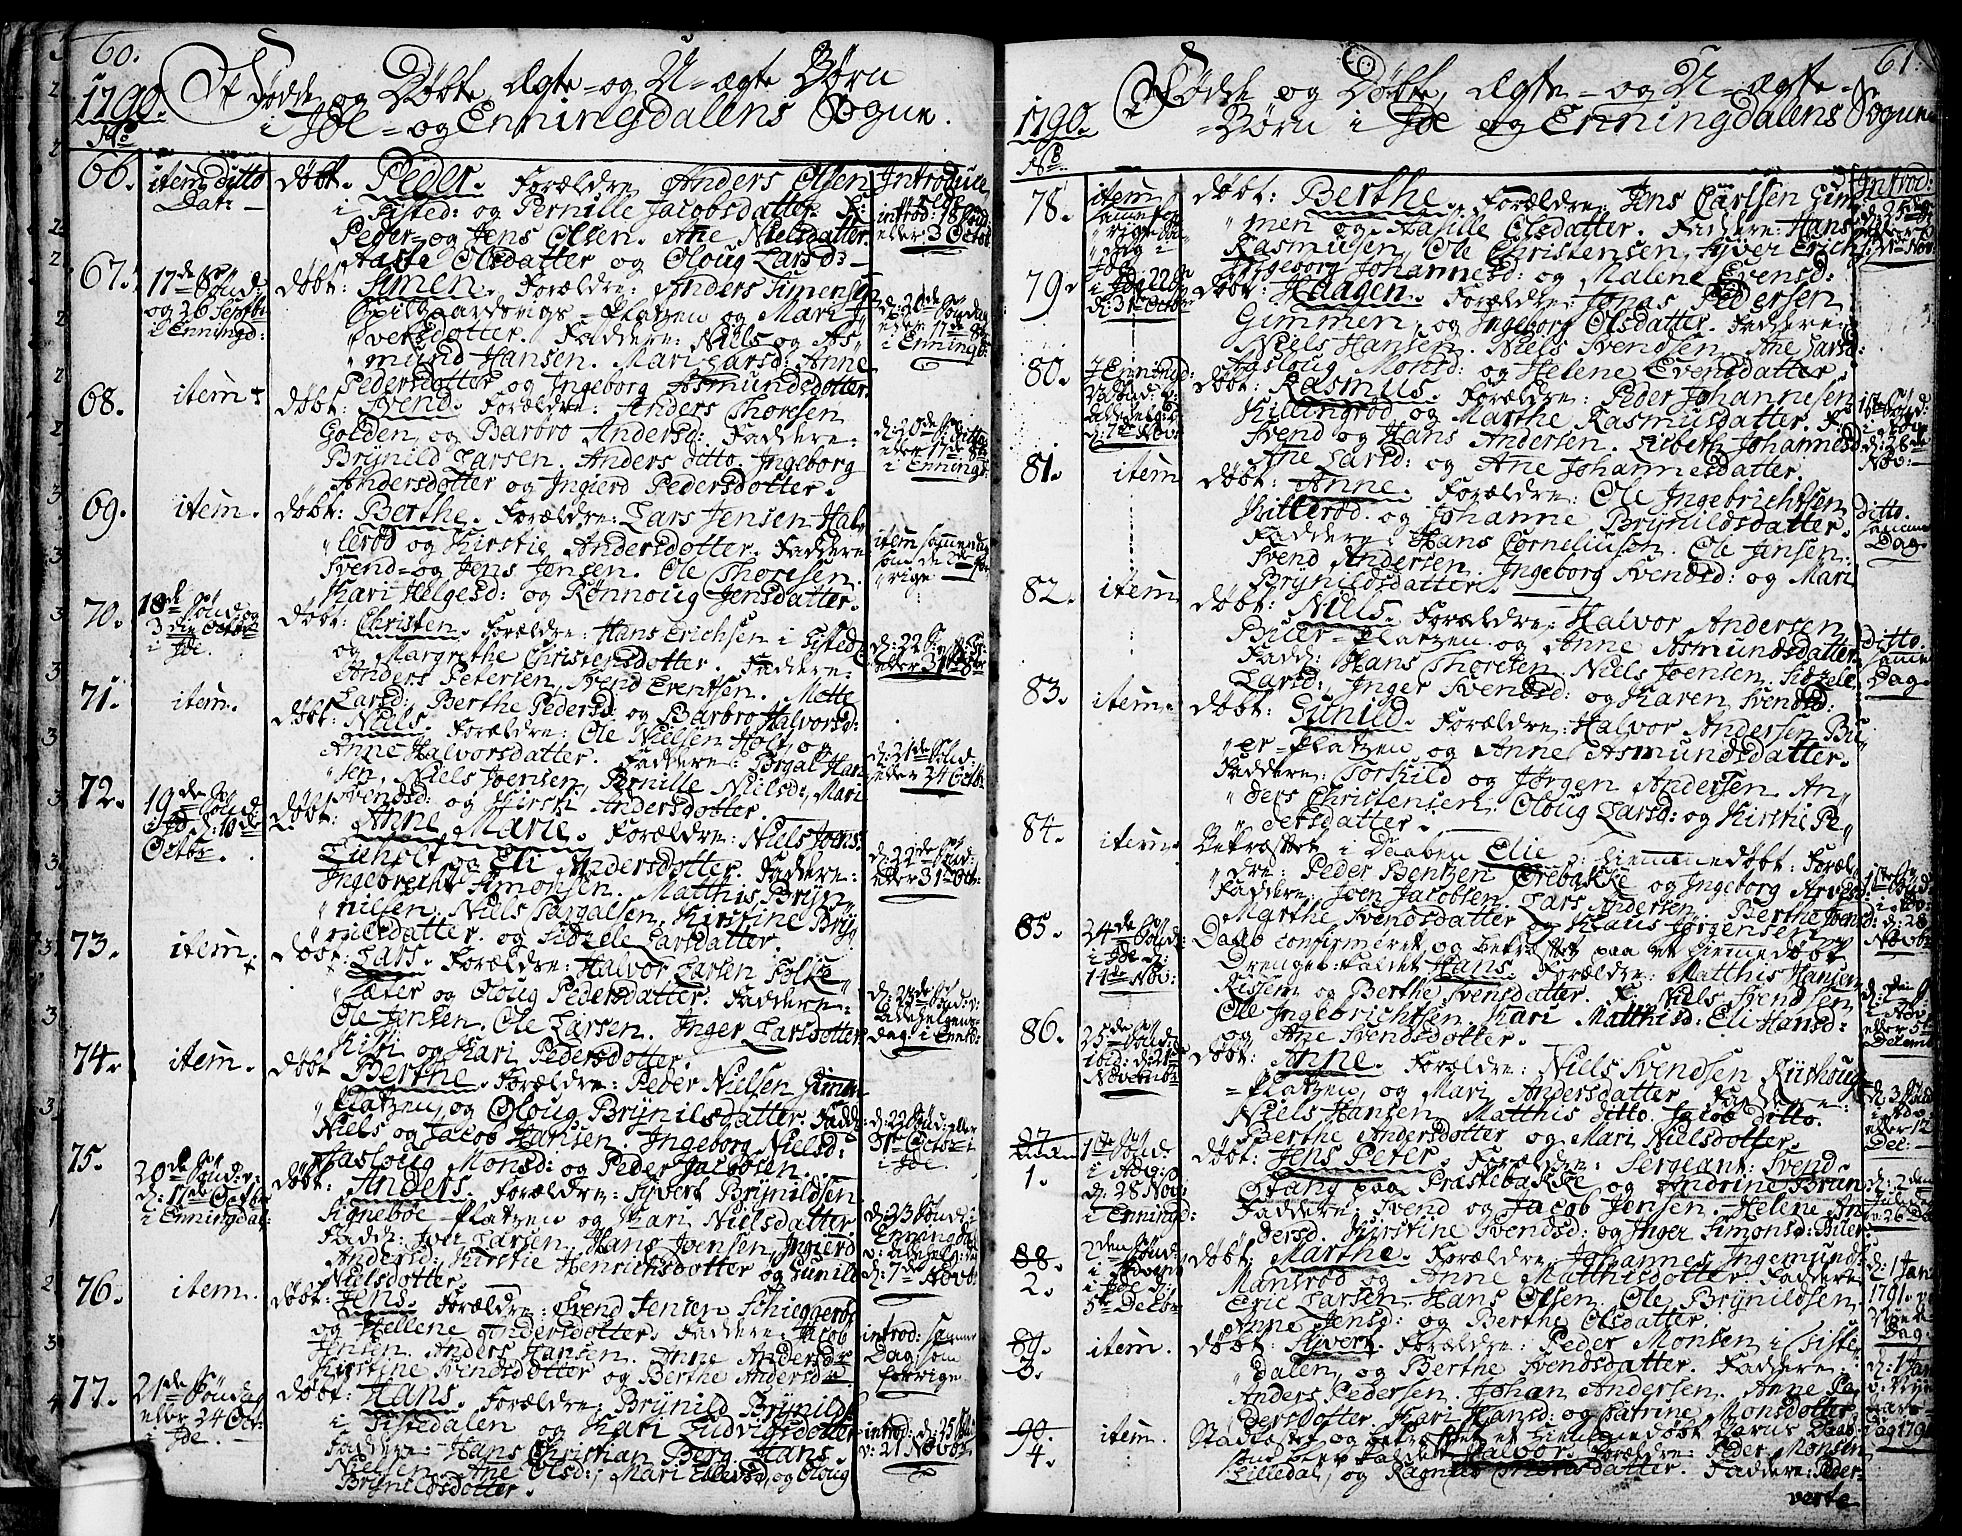 60.
1790.
Fødde og Døbte Ægte- og U-ægte Børn
i Ide- og Enningdalens Sogne.
No
66.
item ditto
Dat:
døbt: Peder. Forældre Anders Olsen
i Tisted: og Pernille Jacobsdatter. F:
Peder- og Jens Olsen. Ane Nielsdatter.
Olsdatter og Oloug Larsd:
67.
17de Sönd:
og 26 Septbr
i Enningd:
døbt: Simen. Forældre: Anders Simensen
-Platzen og Mari I-
versdotter. Faddere: Niels og As-
mund Hansen. Mari Larsd: Anne
Pedersdotter og Ingeborg Asmundsdotter.
68.
item
døbt: Svend. Forældre: Anders Thoresen
Golden og Barbro Andersd: Faddere:
Brynild Larsen. Anders ditto, Ingeborg
Andersdotter og Ingierd Pedersdotter.
d: 20de
eller 17de 8br
i Enningd:
69.
item.
døbt: Berthe. Forældre: Lars Jensen Hal-
lerød og Kirstie Andersdotter. Faddere
Svend- og Jens Jensen. Ole Thoresen.
Kari Helgesd: og Rønnoug Jensdatter.
item samme dag
som de
rige.
70.
18de Sönd: og
3die Octbr
i Ide.
døbt: Christen. Forældre: Hans Erichsen i Tisted:
og Margrethe Christensdotter. Faddere:
Anders Petersen, Svend Evensen. Mette
Larsd: Berthe Pedersd: og Barbro Halvorsd:
71.
item.
døbt: Niels. Forældre: Ole Nielsen Holt, og
Anne Halvorsdatter. Faddere: Torgal Han-
sen, Niels Joensen, Pernille Nielsd:, Mari
Svendsd: og Kirsti Andersdotter.
d: 21de Sönd:
eller 24 Octb:
72.
19de Sönd:
i Ide d: 10de
Octbr.
døbt: Anne Marie. Forældre: Niels Joens:
Liholt og Eli Andersdotter. Faddere:
Ingebrecht Simonsen. Matthis Bryn-
nilsen, Niels Targalsen, Kirstine Bry-
nilsdatter. og Sidzele Larsdatter.
d: 22de Sönd:
eller 31te Oct:
73.
item.
døbt: Lars. Forældre: Halvor Larsen Folke-
sæter og Oloug Pedersdatter. Faddere:
Ole Jensen. Ole Larsen. Inger Larsdotter
Kisti og Kari Pedersdotter.
d: 23de Sönd: v:
Allehelgens-
dag i Ennd:
74.
item.
døbt Berthe. Forældre: Peder Nielsen
Platzen, og Oloug Brynilsdatter. Fadd:
Niels og Jacob Hansen. Ingeborg Nielsd:
Aasloug Monsd: og Peder Jacobsen.
d: 22 Sönd: eller
31te Octbr i
i Ide.
75.
20de Sönd: v:
d: 17de Octbr
i Enningdal:
døbt: Anders. Forældre: Syvert Brynildsen
Signebøe-Platzen og Kari Nielsdatter
Fadd: Joen Larsen, Hans Joensen, Ingierd
Andersd: Kirstie Henrichsdotter og Gunild
Nielsdotter.
d: 23 Sönd: i
Enningdal
d: 7de Novb:
76.
item.
døbt: Jens. Forældre: Svend Jensen
og Hellene Andersdotter. Faddere: Jacob
Jensen. Anders Hansen. Anne Andersdr
Kirstine Svendsdotter og Berthe Andersdr.
introd: samme
Dag som
forrige
77.
21de Søndag
eller 24 Oct:
i Ide.
døbt: Hans. Forældre: Brynild Brynilds:
i Tistedalen og Kari Ludvigsdotter
Faddere: Hans Christian Berg, Hans
Nielsen, Ane Olsd:, Mari og Oloug
Brynildsdotter.
introd: d: 25
v: 21 Novb:
61.
1790.
Fødde og Døbte, Ægte- og U-ægte-
Børn i Ide og Enningdalens Sogne
No
78.
item
døbt: Berthe. Forældre: Jens Carlsen Gim-
men og Aasille Olsdatter. Faddere: Hans
Rasmusen, Ole Christensen, Syver Erichs:
Ingeborg Johannesd: og Malene Evensd:
Introd:
79.
i Ide 22de
d: 31te Octbr
døbt: Haagen. Forældre: Jonas Pedersen
Gimmen, og Ingeborg Olsdatter. Faddere:
Niels Hansen. Niels Svendsen. Ane Larsd:
Aasloug Monsd: og Helene Evensdatter.
80.
i Enningd:
d: 7de Novbr
døbt: Rasmus. Forældre: Peder Johannesen
Killingrød og Marthe Rasmusdatter. F:
Svend og Hans Andersen. Lisbeth Johannesd:
Ane Larsd: og Ane Johannesdatter.
d: 28de
Nov:
81.
item
døbt: Anne. Forældre: Ole Ingebrichtsen
Kitterød. og Johanne Brynildsdatter.
Faddere: Hans Corneliusen. Ole Jensen.
Svend Andersen. Ingeborg Svendsd: og Mari
Brynildsdatter.
ditto.
samme
Dag.
82.
item.
døbt: Niels. Forældre: Halvor Andersen
Buer-Platzen og Anne Asmundsdatter
Fadd: Hans Thoresen, Niels Joensen. Sidzele
Larsd:, Inger Svendsd: og Karen Svendsd:
Ditto.
samme
Dag.
83.
item.
døbt: Gunild. Forældre: Halvor Andersen Bu-
er-Platzen og Anne Asmundsdatter.
Faddere: Torkild og Jørgen Andersen. An-
ders Christensen, Oloug Larsd: og Kirstie Pe-
dersdatter.
84.
item.
Bekræftet i Daaben Elie hiemmedøbt: Foræl-
dre: Peder Bentzen Ørebakke og Ingeborg
Faddere: Joen Jacobsen. Lars Andersen. Berthe Joensd:
Marthe Svendsdatter og Klaus Jørgensen.
85.
24de Sönd:
i Ide d:
14de Nov:
Daab confirmeret og bekræftet paa et hiemmedøbt
Drengeb: kaldet Hans. Forældre: Matthis Hansen
og Berthe Svensdatter. F: Niels Svendsen
Ole Ingebrichtsen. Kari Matthisd: Eli Hansd:
og Ane Svendsdotter.
86.
25de Sönd:
ibid: d: 21de
Novembr
døbt: Anne. Forældre: Niels Svendsen
-Platzen, og Mari Andersdatter. Faddere:
Niels Hansen. Matthis ditto. Jacob ditto.
Berthe Andersdotter og Mari Nielsdotter.
eller 12
Dec:
87.
1.
1te Sönd:
i Adv:
d: 28 Nov:
i Enningd:
døbt: Jens Peter. Forældre: Sergeant Svend
Stang paa Præstebakke og Andrine Brun
Faddere: Svend og Jacob Jensen. Helene An-
dersd. Kirstine Svendsd: og Inger Simonsd: Buer.
88.
2.
2den Sönd:
i Advent
i Ide d:
5te Decbr
døbt: Marthe. Forældre: Johannes Ingemunds:
Mansrød og Anne Matthisdotter. Faddere
Eric Larsen, Hans Olsen, Ole Brynildsen.
Anne Jensd: og Berthe Olsdatter.
d: 1 Jan:
1791.
Dag.
89.
3.
item.
døbt: Syvert. Forældre: Peder Monsen i Tiste-
dalen, og Berthe Svendsdatter. Faddere:
Anders Pedersen. Johan Andersen. Anne Pe-
dersdotter. Kari Hansd: og Catrine Monsdotter.
d: 1 Jan:
Dag 1791.
90.
4.
item.
Stadfæstet og bekræftet et hiemmedøbt Barns Daab
som blev kaldet Halvor. Forældre: Peder Monsen
Lilledal, og Ragnild datter. Faddere: Peder
verte